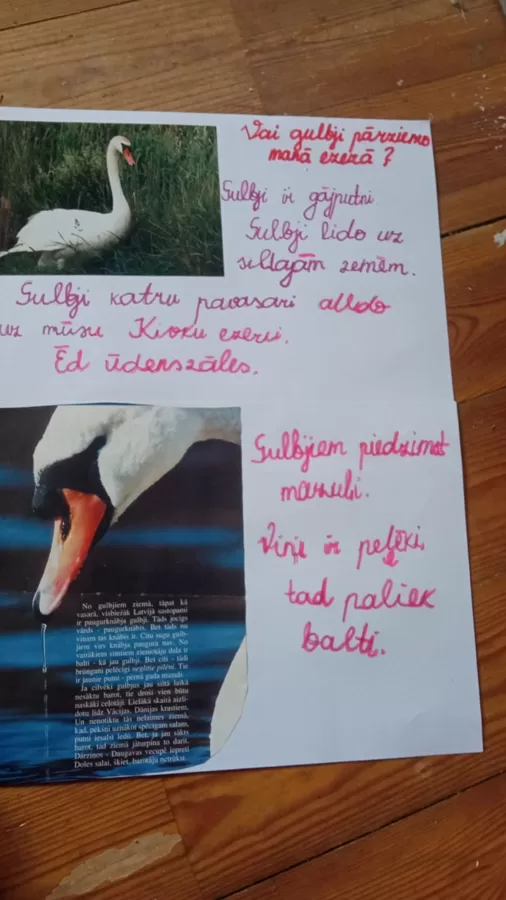 Vai gulbji pārziemo
manā ezerā?
Gulbji ir gājputni.
Gulbji lido uz
siltajām zemēm.
Gulbji katru pavasari atlido
uz mūsu Kiožu ezeru.
Ēd ūdenszāles.
Gulbjiem piedzimst
mazuļi.
Viņi ir pelēki,
tad paliek
balti.
No gulbjiem ziemā, tāpat kā
vasarā, visbiežāk Latvijā sastopami
ir paugurknābja gulbji. Tāds jocīgs
vārds - paugurknābis. Bet tāds nu
viņam tas knābis ir. Citu sugu gulb-
jiem virs knābja paugura nav. No
vairākiem simtiem ziemotāju daļa ir
balti - kā jau gulbji. Bet citi - tādi
brūngani pelēcīgi neglītie pīlēni. Tie
ir jaunie putni - pērnā gada mazuļi.
Ja cilvēki gulbjus jau siltā laikā
nesāktu barot, tie droši vien būtu
naskāki ceļotāji. Lielākā skaitā aizli-
dotu līdz Vācijas, Dānijas krastiem.
Un nenotiktu tās nelaimes ziemā,
kad, pēkšņi uznākot spēcīgam salam,
putni iesalst ledū. Bet, ja jau sākts
barot, tad ziemā jāturpina to darīt.
Dārziņos - Daugavas vecupē iepreti
Doles salai, šķiet, barotāju netrūkst.